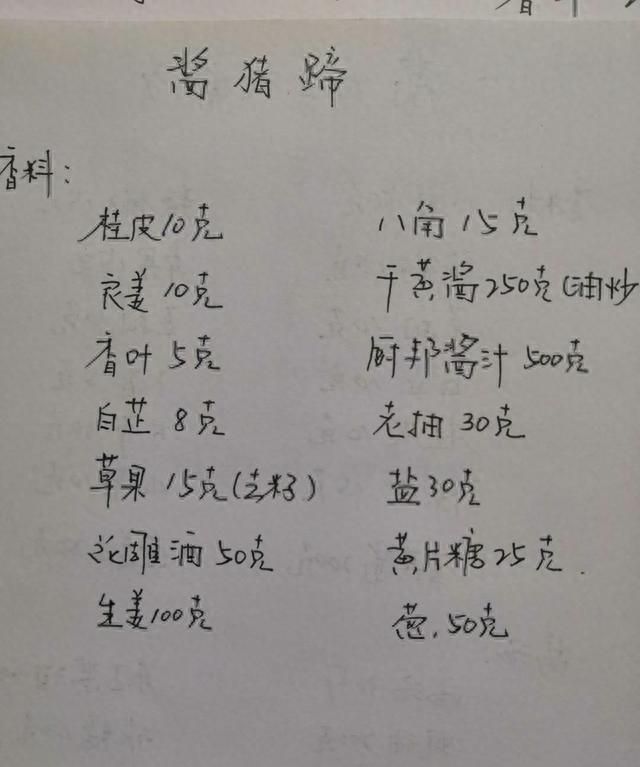 酱猪蹄
香料:
桂皮10克 八角15克
良姜10克 干黄酱250克(油炒
香叶5克 厨邦酱汁500克
白芷8克 老抽30克
草果15克(去籽) 盐30克
花雕酒50克 黄片糖25克.
生姜100克 葱.50克